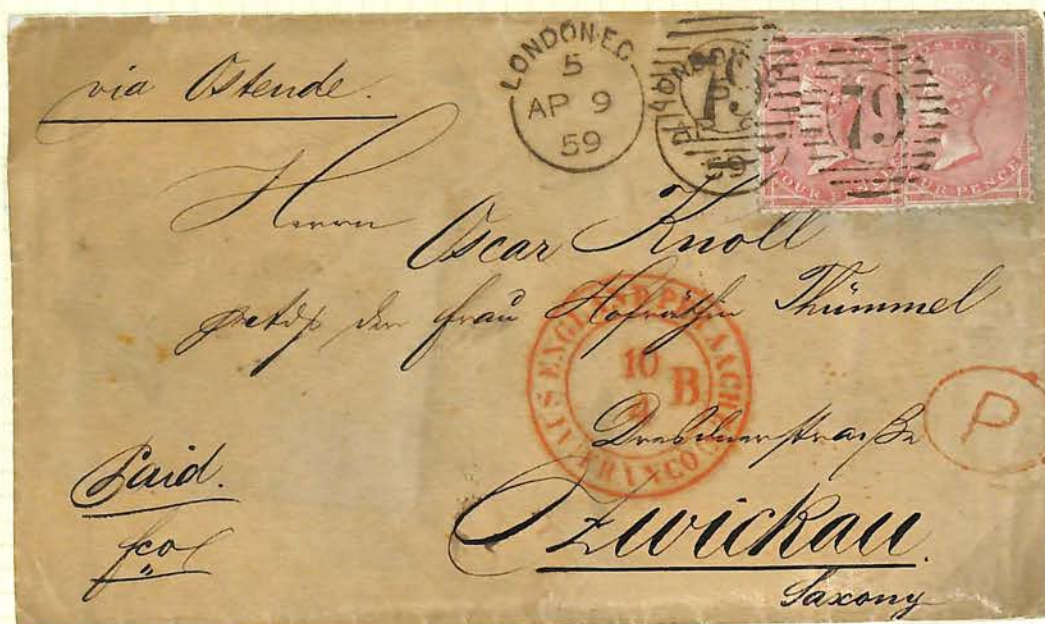 via Ostende.
LONDON·E.C.
5
AP 9
59
79
79
POSTAGE
FOUR PENCE
FOUR PENCE
Herrn
Oscar Knoll
der Frau Hofräthin Thümmel
AUS ENGLAND PER AACHEN
FRANCO
10
4
B
P
Dresdnerstraße
Paid.
fco
Zwickau.
Saxony